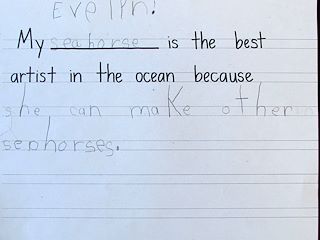 Evelyn!
My seahorse is the best
artist in the ocean because
she can make other
seahorses.